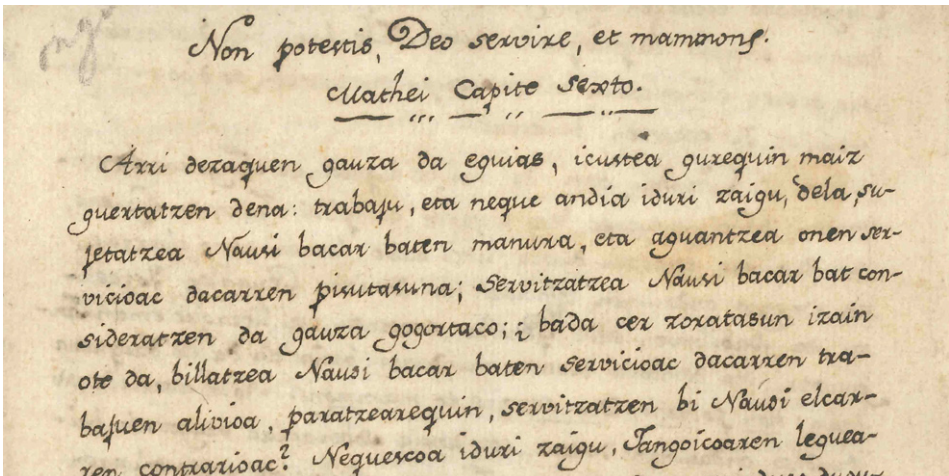 Non potestis, Deo servire, et mammonę.
Mathei Capite Sexto.
Arri dezaquen gauza da eguias, icustea gurequin maiz
guertatzen dena: trabaju, eta neque andia iduri zaigu, dela, su-
jetatzea Nausi bacar baten manura, eta aguantzea onen ser-
vicioac dacarren pisutasuna; servitzatzea Nausi bacar bat con-
sideratzen da gauza gogortaco; ¿ bada cer zoratasun izain
ote da, billatzea Nausi bacar baten servicioac dacarren tra-
bajuen alivioa, paratzearequin, servitzatzen bi Nausi elcar-
ren contrarioac? Nequescoa iduri zaigu, Jangoicoaren leguea-